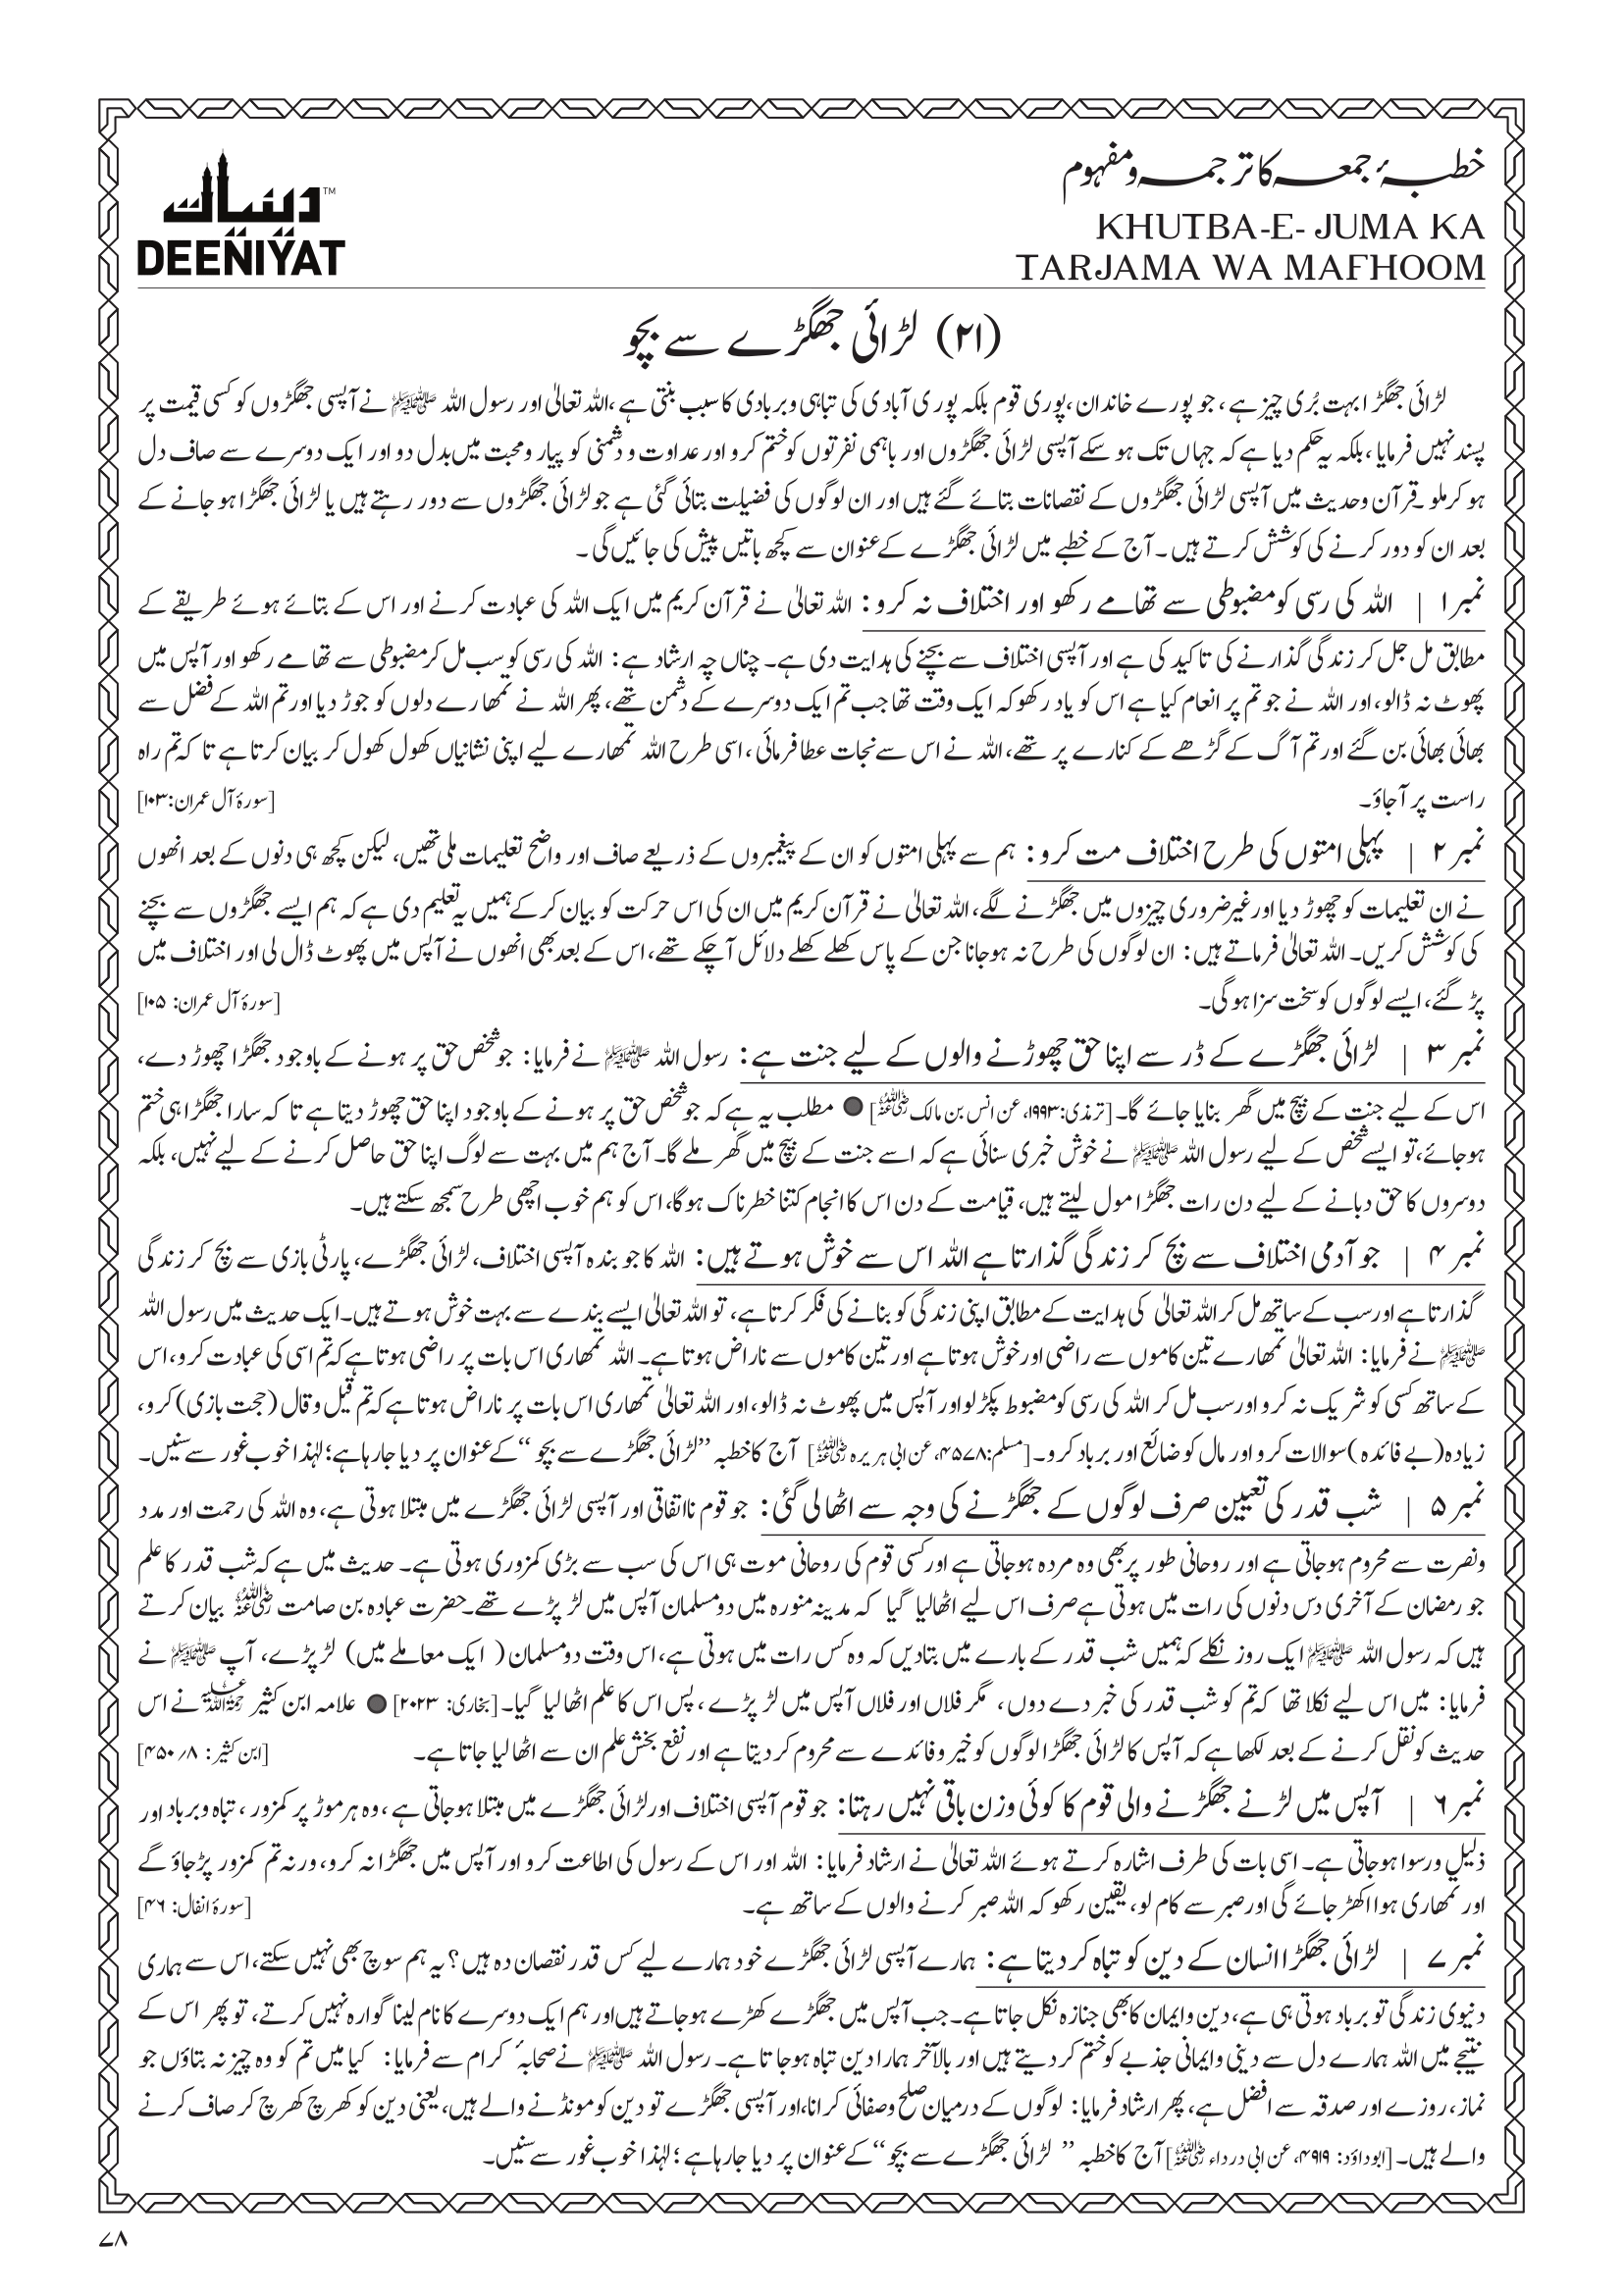 خطبۂ جمعہ کا ترجمہ و مفہوم
دینیات™
DEENIYAT
KHUTBA-E- JUMA KA
TARJAMA WA MAFHOOM
(۲۱) لڑائی جھگڑے سے بچو
لڑائی جھگڑا بہت بُری چیز ہے، جو پورے خاندان، پوری قوم بلکہ پوری آبادی کی تباہی و بربادی کا سبب بنتی ہے، اللہ تعالیٰ اور رسول اللہ ﷺ نے آپسی جھگڑوں کو کسی قیمت پر
پسند نہیں فرمایا، بلکہ یہ حکم دیا ہے کہ جہاں تک ہو سکے آپسی لڑائی جھگڑوں اور باہمی نفرتوں کو ختم کرو اور عداوت و دشمنی کو پیار و محبت میں بدل دو اور ایک دوسرے سے صاف دل
ہو کر ملو۔ قرآن و حدیث میں آپسی لڑائی جھگڑوں کے نقصانات بتائے گئے ہیں اور ان لوگوں کی فضیلت بتائی گئی ہے جو لڑائی جھگڑوں سے دور رہتے ہیں یا لڑائی جھگڑا ہو جانے کے
بعد ان کو دور کرنے کی کوشش کرتے ہیں۔ آج کے خطبے میں لڑائی جھگڑے کے عنوان سے کچھ باتیں پیش کی جائیں گی۔
نمبر ۱ | اللہ کی رسی کو مضبوطی سے تھامے رکھو اور اختلاف نہ کرو: اللہ تعالیٰ نے قرآن کریم میں ایک اللہ کی عبادت کرنے اور اس کے بتائے ہوئے طریقے کے
مطابق مل جل کر زندگی گذارنے کی تاکید کی ہے اور آپسی اختلاف سے بچنے کی ہدایت دی ہے۔ چناں چہ ارشاد ہے: اللہ کی رسی کو سب مل کر مضبوطی سے تھامے رکھو اور آپس میں
پھوٹ نہ ڈالو، اور اللہ نے جو تم پر انعام کیا ہے اس کو یاد رکھو کہ ایک وقت تھا جب تم ایک دوسرے کے دشمن تھے، پھر اللہ نے تمھارے دلوں کو جوڑ دیا اور تم اللہ کے فضل سے
بھائی بھائی بن گئے اور تم آگ کے گڑھے کے کنارے پر تھے، اللہ نے اس سے نجات عطا فرمائی، اسی طرح اللہ تمھارے لیے اپنی نشانیاں کھول کھول کر بیان کرتا ہے تا کہ تم راہ
راست پر آجاؤ۔ [سورۂ آل عمران: ۱۰۳]
نمبر ۲ | پہلی امتوں کی طرح اختلاف مت کرو: ہم سے پہلی امتوں کو ان کے پیغمبروں کے ذریعے صاف اور واضح تعلیمات ملی تھیں، لیکن کچھ ہی دنوں کے بعد انھوں
نے ان تعلیمات کو چھوڑ دیا اور غیر ضروری چیزوں میں جھگڑنے لگے، اللہ تعالیٰ نے قرآن کریم میں ان کی اس حرکت کو بیان کر کے ہمیں یہ تعلیم دی ہے کہ ہم ایسے جھگڑوں سے بچنے
کی کوشش کریں۔ اللہ تعالیٰ فرماتے ہیں: ان لوگوں کی طرح نہ ہوجانا جن کے پاس کھلے کھلے دلائل آچکے تھے، اس کے بعد بھی انھوں نے آپس میں پھوٹ ڈال لی اور اختلاف میں
پڑ گئے، ایسے لوگوں کو سخت سزا ہو گی۔ [سورۂ آل عمران: ۱۰۵]
نمبر ۳ | لڑائی جھگڑے کے ڈر سے اپنا حق چھوڑنے والوں کے لیے جنت ہے: رسول اللہ ﷺ نے فرمایا: جو شخص حق پر ہونے کے باوجود جھگڑا چھوڑ دے،
اس کے لیے جنت کے بیچ میں گھر بنایا جائے گا۔ [ترمذی: ۱۹۹۳، عن انس بن مالک رضی اللہ عنہ] ● مطلب یہ ہے کہ جو شخص حق پر ہونے کے باوجود اپنا حق چھوڑ دیتا ہے تا کہ سارا جھگڑا ہی ختم
ہوجائے، تو ایسے شخص کے لیے رسول اللہ ﷺ نے خوش خبری سنائی ہے کہ اسے جنت کے بیچ میں گھر ملے گا۔ آج ہم میں بہت سے لوگ اپنا حق حاصل کرنے کے لیے نہیں، بلکہ
دوسروں کا حق دبانے کے لیے دن رات جھگڑا مول لیتے ہیں، قیامت کے دن اس کا انجام کتنا خطرناک ہوگا، اس کو ہم خوب اچھی طرح سمجھ سکتے ہیں۔
نمبر ۴ | جو آدمی اختلاف سے بچ کر زندگی گذارتا ہے اللہ اس سے خوش ہوتے ہیں: اللہ کا جو بندہ آپسی اختلاف، لڑائی جھگڑے، پارٹی بازی سے بچ کر زندگی
گذارتا ہے اور سب کے ساتھ مل کر اللہ تعالیٰ کی ہدایت کے مطابق اپنی زندگی کو بنانے کی فکر کرتا ہے، تو اللہ تعالیٰ ایسے بندے سے بہت خوش ہوتے ہیں۔ ایک حدیث میں رسول اللہ
ﷺ نے فرمایا: اللہ تعالیٰ تمھارے تین کاموں سے راضی اور خوش ہوتا ہے اور تین کاموں سے ناراض ہوتا ہے۔ اللہ تمھاری اس بات پر راضی ہوتا ہے کہ تم اسی کی عبادت کرو، اس
کے ساتھ کسی کو شریک نہ کرو اور سب مل کر اللہ کی رسی کو مضبوط پکڑ لو اور آپس میں پھوٹ نہ ڈالو، اور اللہ تعالیٰ تمھاری اس بات پر ناراض ہوتا ہے کہ تم قیل و قال (حجت بازی) کرو،
زیادہ (بے فائدہ) سوالات کرو اور مال کو ضائع اور برباد کرو۔ [مسلم: ۴۵۷۸، عن ابی ہریرہ رضی اللہ عنہ] آج کا خطبہ ”لڑائی جھگڑے سے بچو“ کے عنوان پر دیا جارہا ہے؛ لہٰذا خوب غور سے سنیں۔
نمبر ۵ | شب قدر کی تعیین صرف لوگوں کے جھگڑنے کی وجہ سے اٹھالی گئی: جو قوم نااتفاقی اور آپسی لڑائی جھگڑے میں مبتلا ہوتی ہے، وہ اللہ کی رحمت اور مدد
ونصرت سے محروم ہوجاتی ہے اور روحانی طور پر بھی وہ مردہ ہوجاتی ہے اور کسی قوم کی روحانی موت ہی اس کی سب سے بڑی کمزوری ہوتی ہے۔ حدیث میں ہے کہ شب قدر کا علم
جو رمضان کے آخری دس دنوں کی رات میں ہوتی ہے صرف اس لیے اٹھالیا گیا کہ مدینہ منورہ میں دو مسلمان آپس میں لڑ پڑے تھے۔ حضرت عبادہ بن صامت رضی اللہ عنہ بیان کرتے
ہیں کہ رسول اللہ ﷺ ایک روز نکلے کہ ہمیں شب قدر کے بارے میں بتادیں کہ وہ کس رات میں ہوتی ہے، اس وقت دو مسلمان (ایک معاملے میں) لڑ پڑے، آپ ﷺ نے
فرمایا: میں اس لیے نکلا تھا کہ تم کو شب قدر کی خبر دے دوں، مگر فلاں اور فلاں آپس میں لڑ پڑے، پس اس کا علم اٹھالیا گیا۔ [بخاری: ۲۰۲۳] ● علامہ ابن کثیر رحمۃ اللہ علیہ نے اس
حدیث کو نقل کرنے کے بعد لکھا ہے کہ آپس کا لڑائی جھگڑا لوگوں کو خیر و فائدے سے محروم کر دیتا ہے اور نفع بخش علم ان سے اٹھالیا جاتا ہے۔ [ابن کثیر: ۸/ ۴۵۰]
نمبر ۶ | آپس میں لڑنے جھگڑنے والی قوم کا کوئی وزن باقی نہیں رہتا: جو قوم آپسی اختلاف اور لڑائی جھگڑے میں مبتلا ہوجاتی ہے، وہ ہر موڑ پر کمزور، تباہ و برباد اور
ذلیل و رسوا ہوجاتی ہے۔ اسی بات کی طرف اشارہ کرتے ہوئے اللہ تعالیٰ نے ارشاد فرمایا: اللہ اور اس کے رسول کی اطاعت کرو اور آپس میں جھگڑا نہ کرو، ورنہ تم کمزور پڑجاؤ گے
اور تمھاری ہوا اکھڑ جائے گی اور صبر سے کام لو، یقین رکھو کہ اللہ صبر کرنے والوں کے ساتھ ہے۔ [سورۂ انفال: ۴۶]
نمبر ۷ | لڑائی جھگڑا انسان کے دین کو تباہ کر دیتا ہے: ہمارے آپسی لڑائی جھگڑے خود ہمارے لیے کس قدر نقصان دہ ہیں؟ یہ ہم سوچ بھی نہیں سکتے، اس سے ہماری
دنیوی زندگی تو برباد ہوتی ہی ہے، دین وایمان کا بھی جنازہ نکل جاتا ہے۔ جب آپس میں جھگڑے کھڑے ہوجاتے ہیں اور ہم ایک دوسرے کا نام لینا گوارہ نہیں کرتے، تو پھر اس کے
نتیجے میں اللہ ہمارے دل سے دینی وایمانی جذبے کو ختم کر دیتے ہیں اور بالآخر ہمارا دین تباہ ہوجاتا ہے۔ رسول اللہ ﷺ نے صحابۂ کرام سے فرمایا: کیا میں تم کو وہ چیز نہ بتاؤں جو
نماز، روزے اور صدقہ سے افضل ہے، پھر ارشاد فرمایا: لوگوں کے درمیان صلح وصفائی کرانا، اور آپسی جھگڑے تو دین کو مونڈنے والے ہیں، یعنی دین کو کھرچ کھرچ کر صاف کرنے
والے ہیں۔ [ابوداؤد: ۴۹۱۹، عن ابی درداء رضی اللہ عنہ] آج کا خطبہ ”لڑائی جھگڑے سے بچو“ کے عنوان پر دیا جارہا ہے؛ لہٰذا خوب غور سے سنیں۔
۷۸